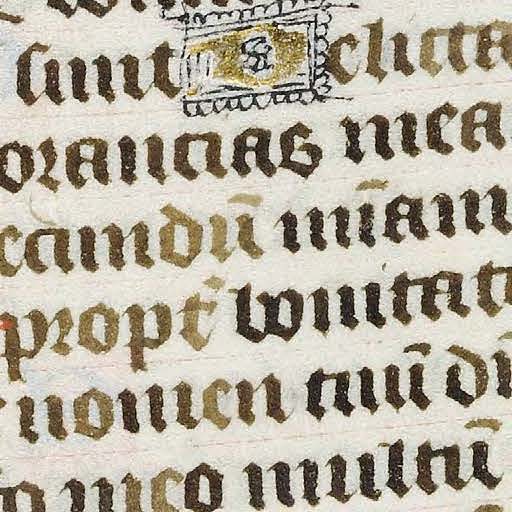 sunt Delicta
orantias mea
cundū mīam
propt̄ bonitat
nomen tuū dn̄
o meo multū